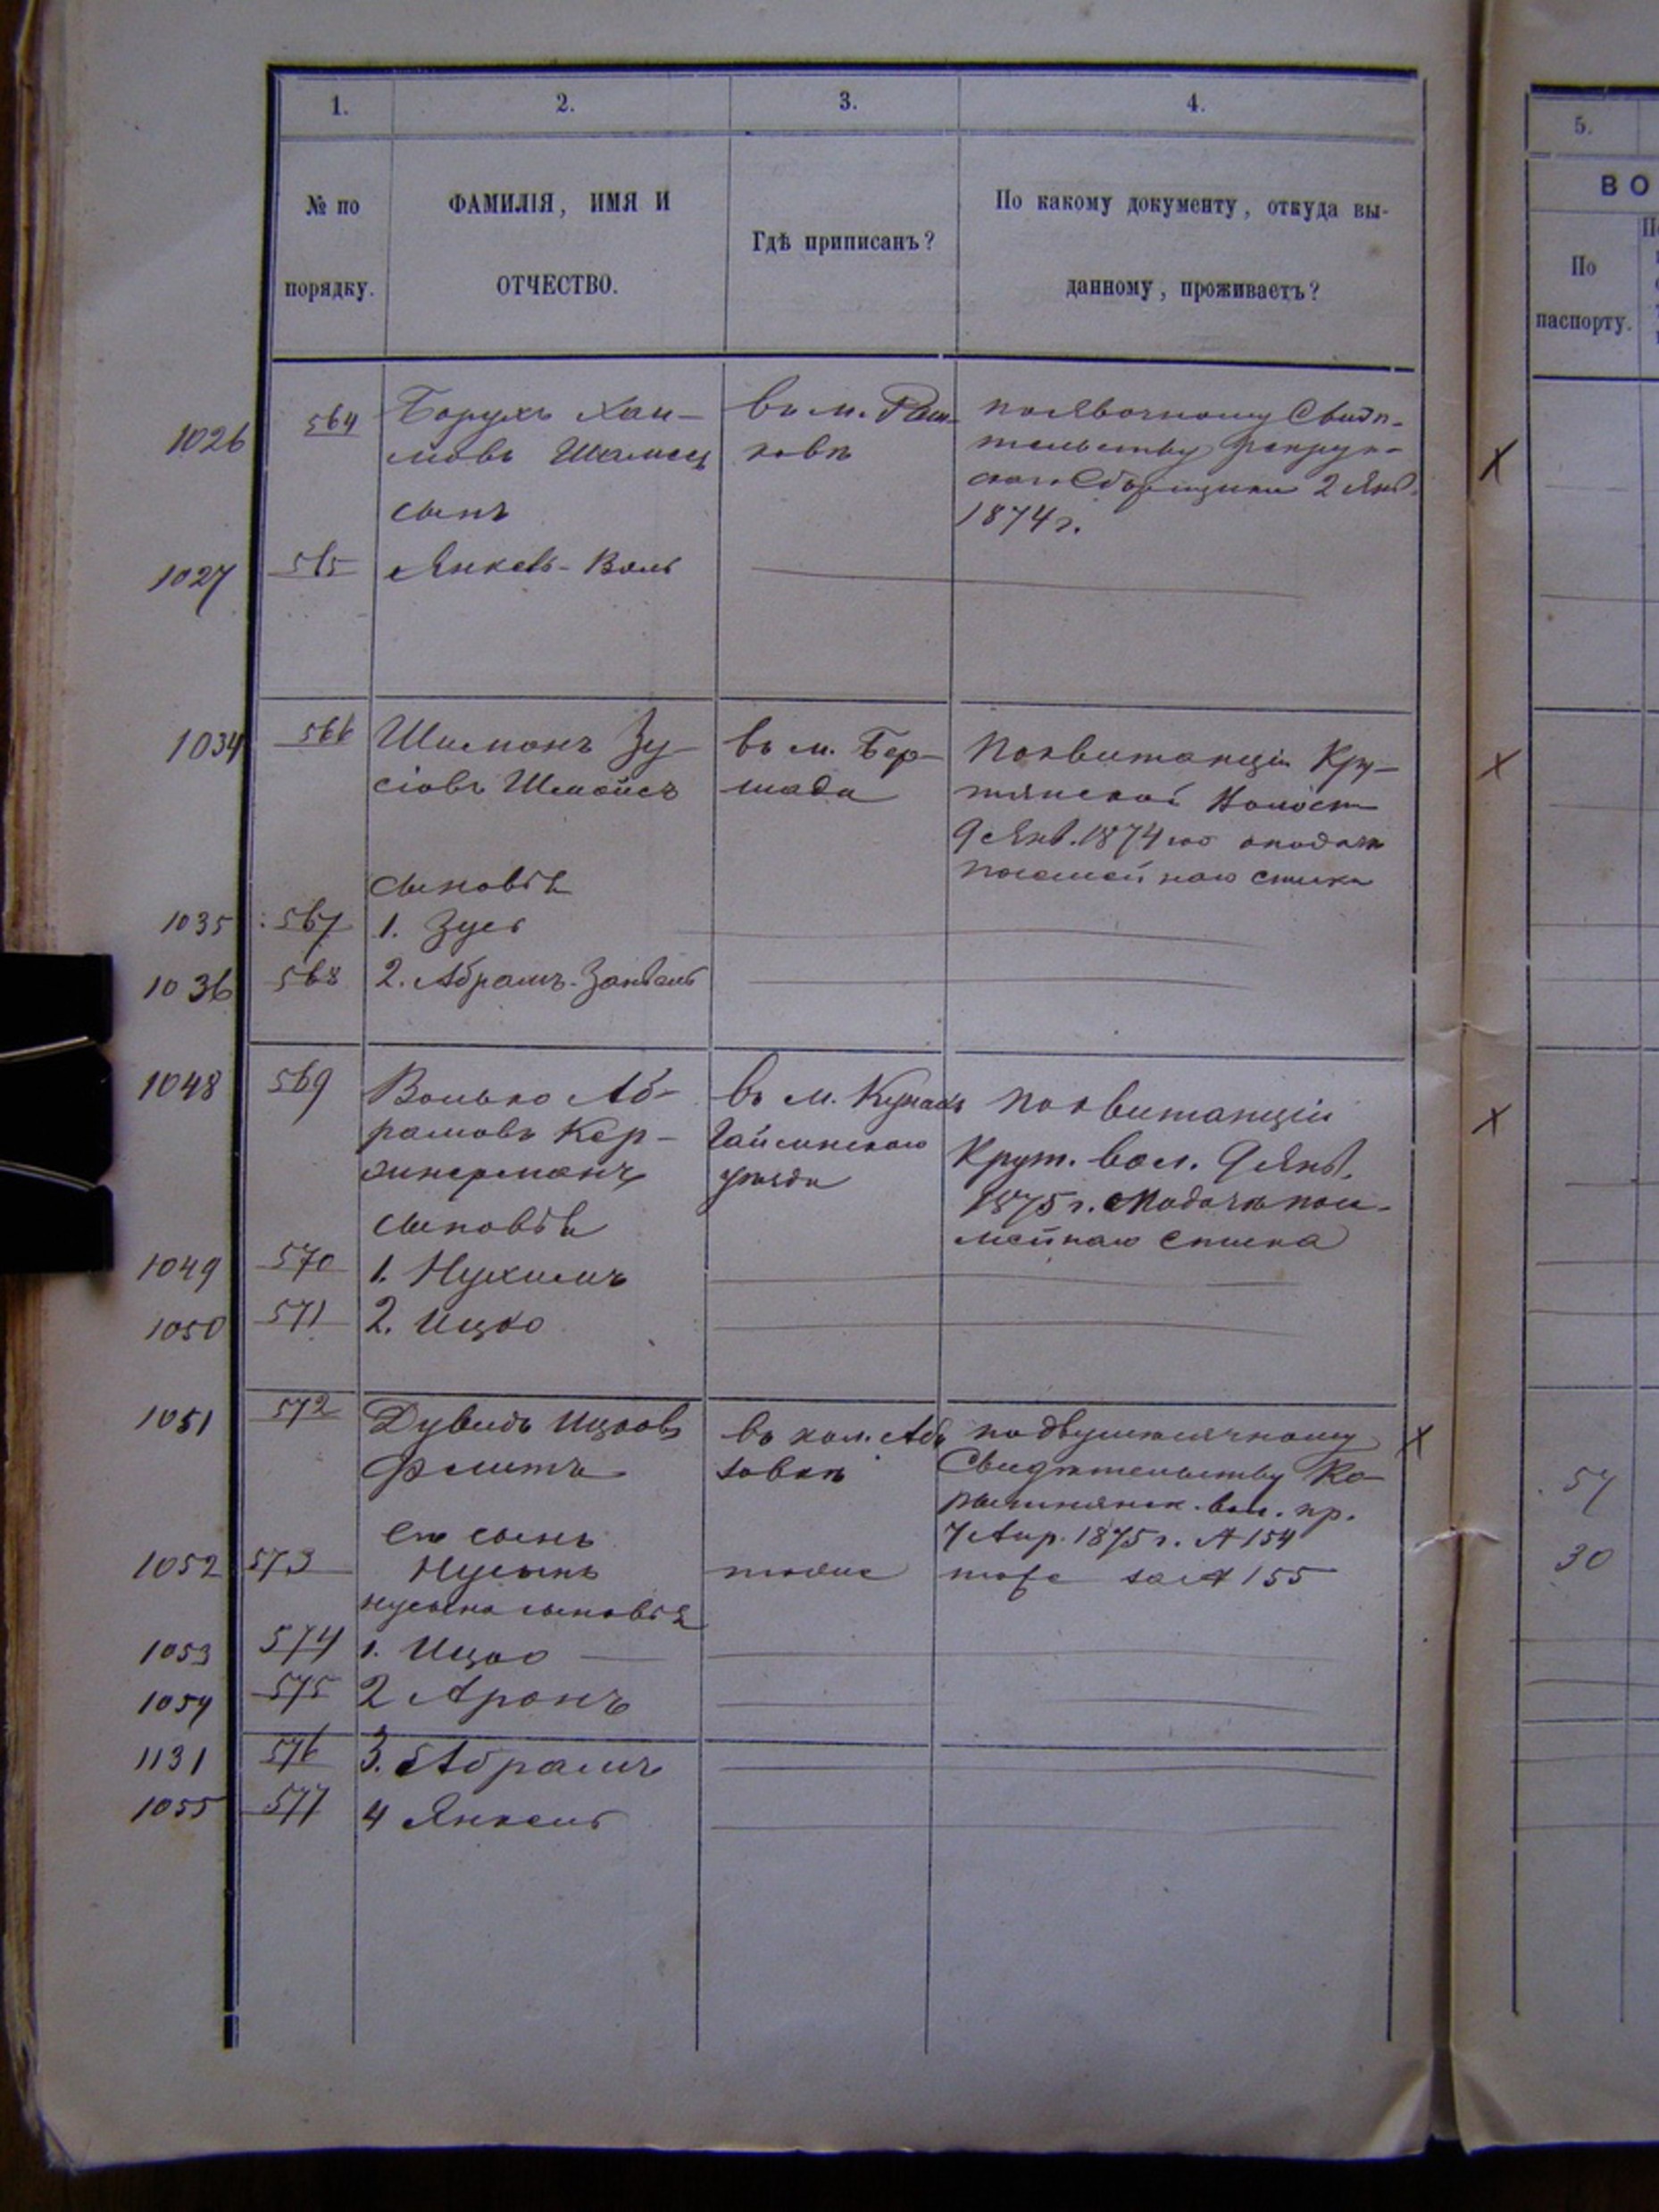 1.
2.
3.
4.
5.
№ по
порядку.
ФАМИЛІЯ, ИМЯ И
ОТЧЕСТВО.
Гдѣ приписанъ?
По какому документу, откуда вы-
данному, проживаетъ?
ВО
По
паспорту.
1026 564 Борухъ Хаи- въ м. Раш- по явочному Свидѣ-
мовъ ковѣ тельству рекрут-
Сборщика 2 Янв.
сынъ 1874 г.
1027 565 Янкель-Волъ
1034 566 Шимонъ Зу- въ м. Бер- По квитанціи Кру-
сіовъ шади тянской Волости
9 Янв. 1874 о подачи
сыновья посемейнаго списка
1035 567 1. Зусь
1036 568 2. Абрамъ-Занвель
1048 569 Волько Аб- въ м. по квитанціи
рамовъ Кер- Гайсинскаго Крут. вол. 9 Янв.
уѣзда 1875 г. о подачѣ посе-
сыновья мейнаго списка
1049 570 1. Нухимъ
1050 571 2. Ицко
1051 572 Дувидъ Ицковъ въ кол. по двумѣсячному
Свидѣтельству Ко-
вол. пр.
Его сынъ 7 Апр. 1875 г. № 154
1052 573 Нусынъ тоже за № 155
Нусына сыновья
1053 574 1. Ицко
1054 575 2 Аронъ
1131 576 3. Абрамъ
1055 577 4 Янкель
57
30